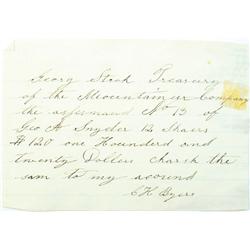 Georg Stroh Treasury
of the Mountainier Company
the assesment No 13 of
Geo H Snyder 12 Shaers
$120 one Hounderd and
twenty Dollers charsh the
sam to my acound
C H Byers